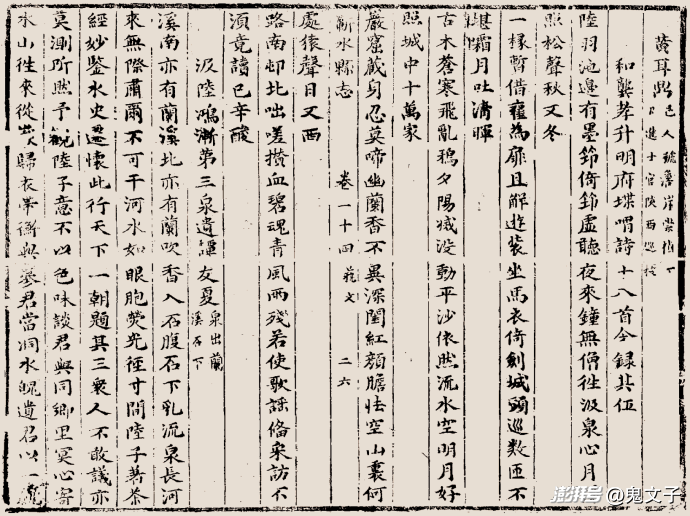 黃耳鼎
和龔孝升明府堞唱詩十八首今録其伍
陸羽池邊有墨節倚節虛聽夜來鐘無僧徃汲泉心月
照松聲秋又冬
一椽暫借蘊為扉且解遊裝坐馬衣倚劍城頭巡數匝不
堪霜月吐清暉
古木蒼寒飛亂鴉夕陽㓕没動平沙依然流水空明月好
照城中十萬家
巖窟蔵身忍莫啼幽蘭香不異深閨紅顔膽怯空山裏何
蘄水縣志 卷一十四 藝文 二六
處猿聲日又西
路南邨北咄嗟攢血碧魂青風雨殘若使歌謡偹采訪不
須竟讀已辛酸
汲陸鴻漸第三泉遺譚友夏 泉出蘭
溪石下
溪南亦有蘭溪北亦有蘭吹香入石腹石下乳流泉長河
來無際肅爾不可干河水如眼胞熒光徑寸間陸子著茶
經妙鑒水史還懷此行天下一朝題其三衆人不敢議亦
莫測所然予觀陸子意不以色味談君與同鄉里冥心寄
水山徃來從 歸衣 衡與暮君當洞水 遺君以一
澎湃号@鬼文子